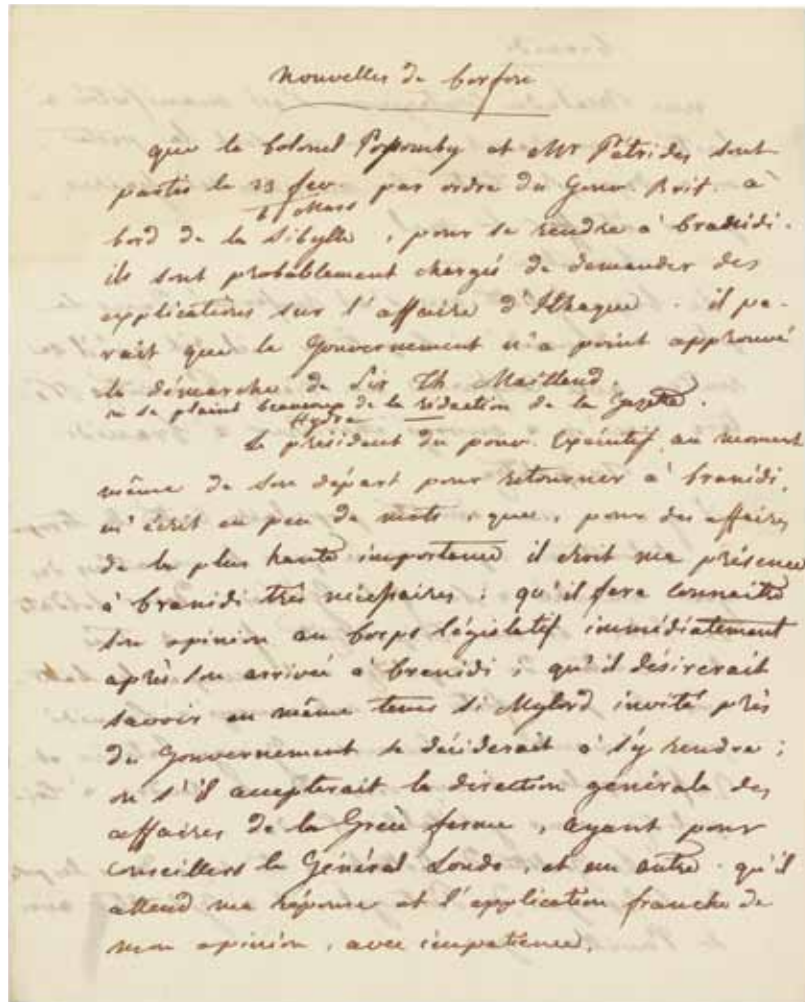 Nouvelles de Corfou
que le Colonel Posomby et Mr Pétrides sont
partis le 23 fev. par ordre du Gouv. Brit. a
6 Mars
bord de la Sibylle, pour se rendre a' Cranidi.
ils sont probâblement chargés de demander des
explications sur l'affaire d'Ithaque. il pa-
rait que le Gouvernement n'a point approuvé
la démarche de Sir Th Maitland.
on se plaint beaucoup de la rédaction de la Gazette.
Hydra
Le président du pouv. Exécutif, au moment
même de son départ pour retourner a' Cranidi,
m'écrit en peu de mots, que, pour des affaires
de la plus haute importance il croit ma présence
à Cranidi très nécessaires; qu'il fera connaitre
son opinion au Corps législatif immédiatement
après son arrivée à Cranidi; qu'il désirerait
savoir en même tems si Mylord invité près
du Gouvernement se déciderait à s'y rendre;
ou s'il accepterait la direction générale des
affaires de la Grece ferme, ayant pour
conseillers le Général Londo, et un autre. qu'il
attend ma réponse et l'explication franche de
mon opinion, avec impatience.